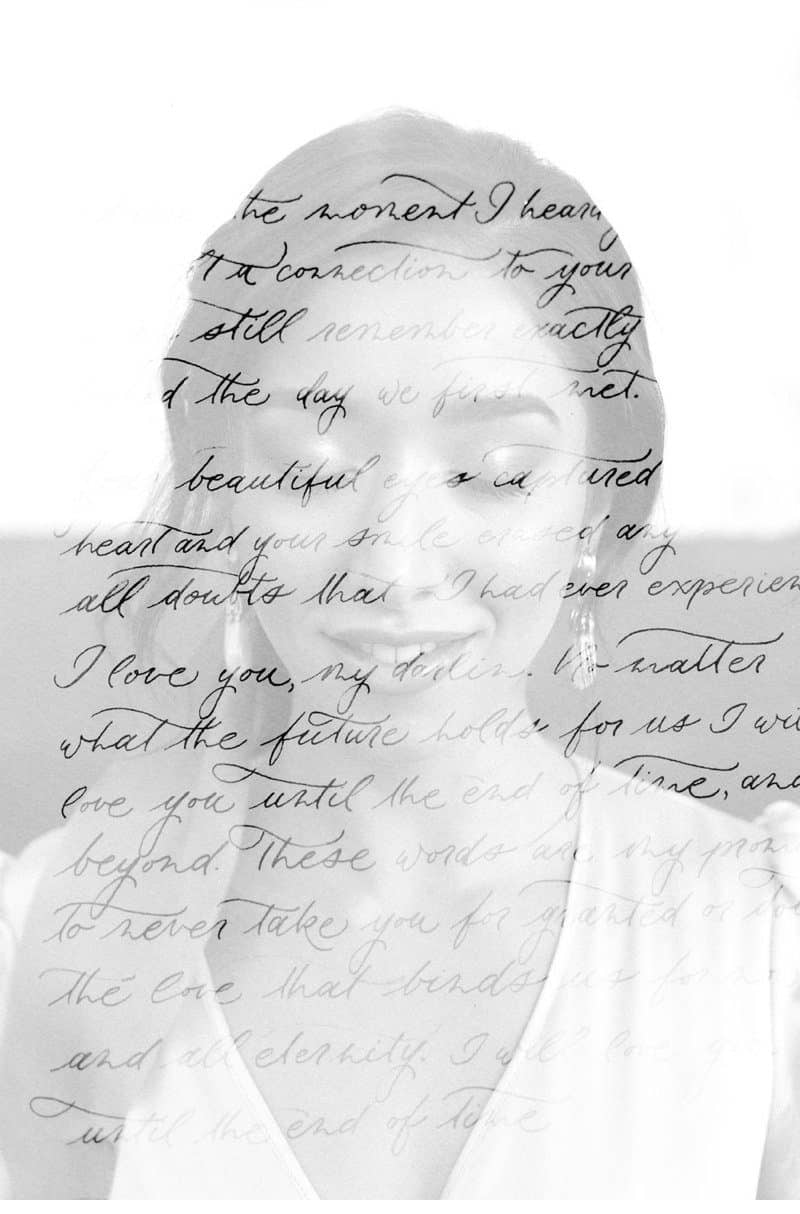 the moment I hear
a connection to your
still remember exactly
the day we first met.
beautiful eyes captured
heart and your smile erased any
all doubts that I had ever experien
I love you, my darlin. No matter
what the future holds for us I wil
love you until the end of time, and
beyond. These words are my prom
to never take you for granted or
the love that binds us for
and all eternity. I will love you
until the end of time